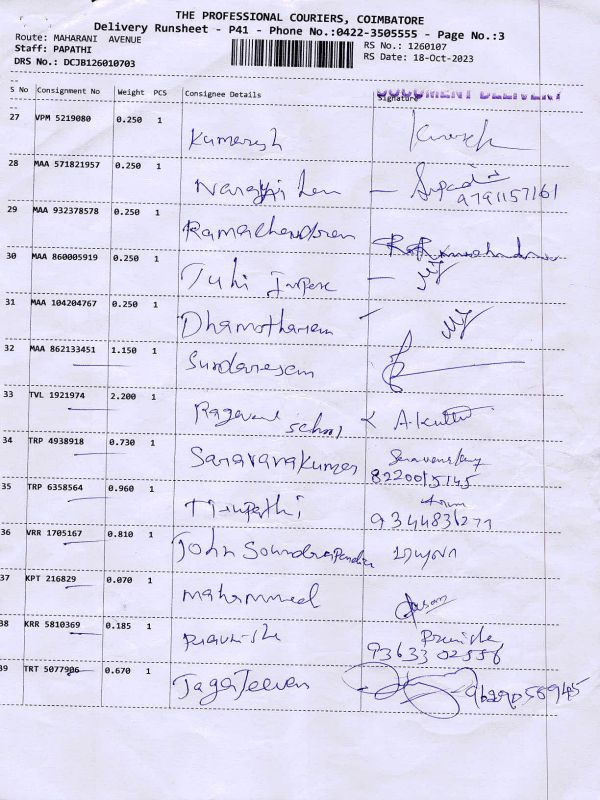 THE PROFESSIONAL COURIERS, COIMBATORE
Delivery Runsheet - P41 - Phone No.:0422-3505555 - Page No.:3
Route: MAHARANI AVENUE
RS No.: 1260107
Staff: PAPATHI
RS Date: 18-Oct-2023
DRS No.: DCJB126010703
DOCUMENT DELIVERY
S No Consignment No Weight PCS Consignee Details Signature
27 VPM 5219080 0.250 1
Kumaresh
28 MAA 571821957 0.250 1
9791157161
29 MAA 932378578 0.250 1
Ramachandren
30 MAA 860005919 0.250 1
31 MAA 104204767 0.250 1
Dhamotharan
32 MAA 862133451 1.150 1
Sundaresan
33 TVL 1921974 2.200 1
school A.Kutti
34 TRP 4938918 0.730 1
Saravanakumar
8220015145
35 TRP 6358564 0.960 1
Tirupathi
9344836271
36 VRR 1705167 0.810 1
John
37 KPT 216829 0.070 1
Mahammed
38 KRR 5810369 0.185 1
93633 02556
39 TRT 5077906 0.670 1
JagaJeevan